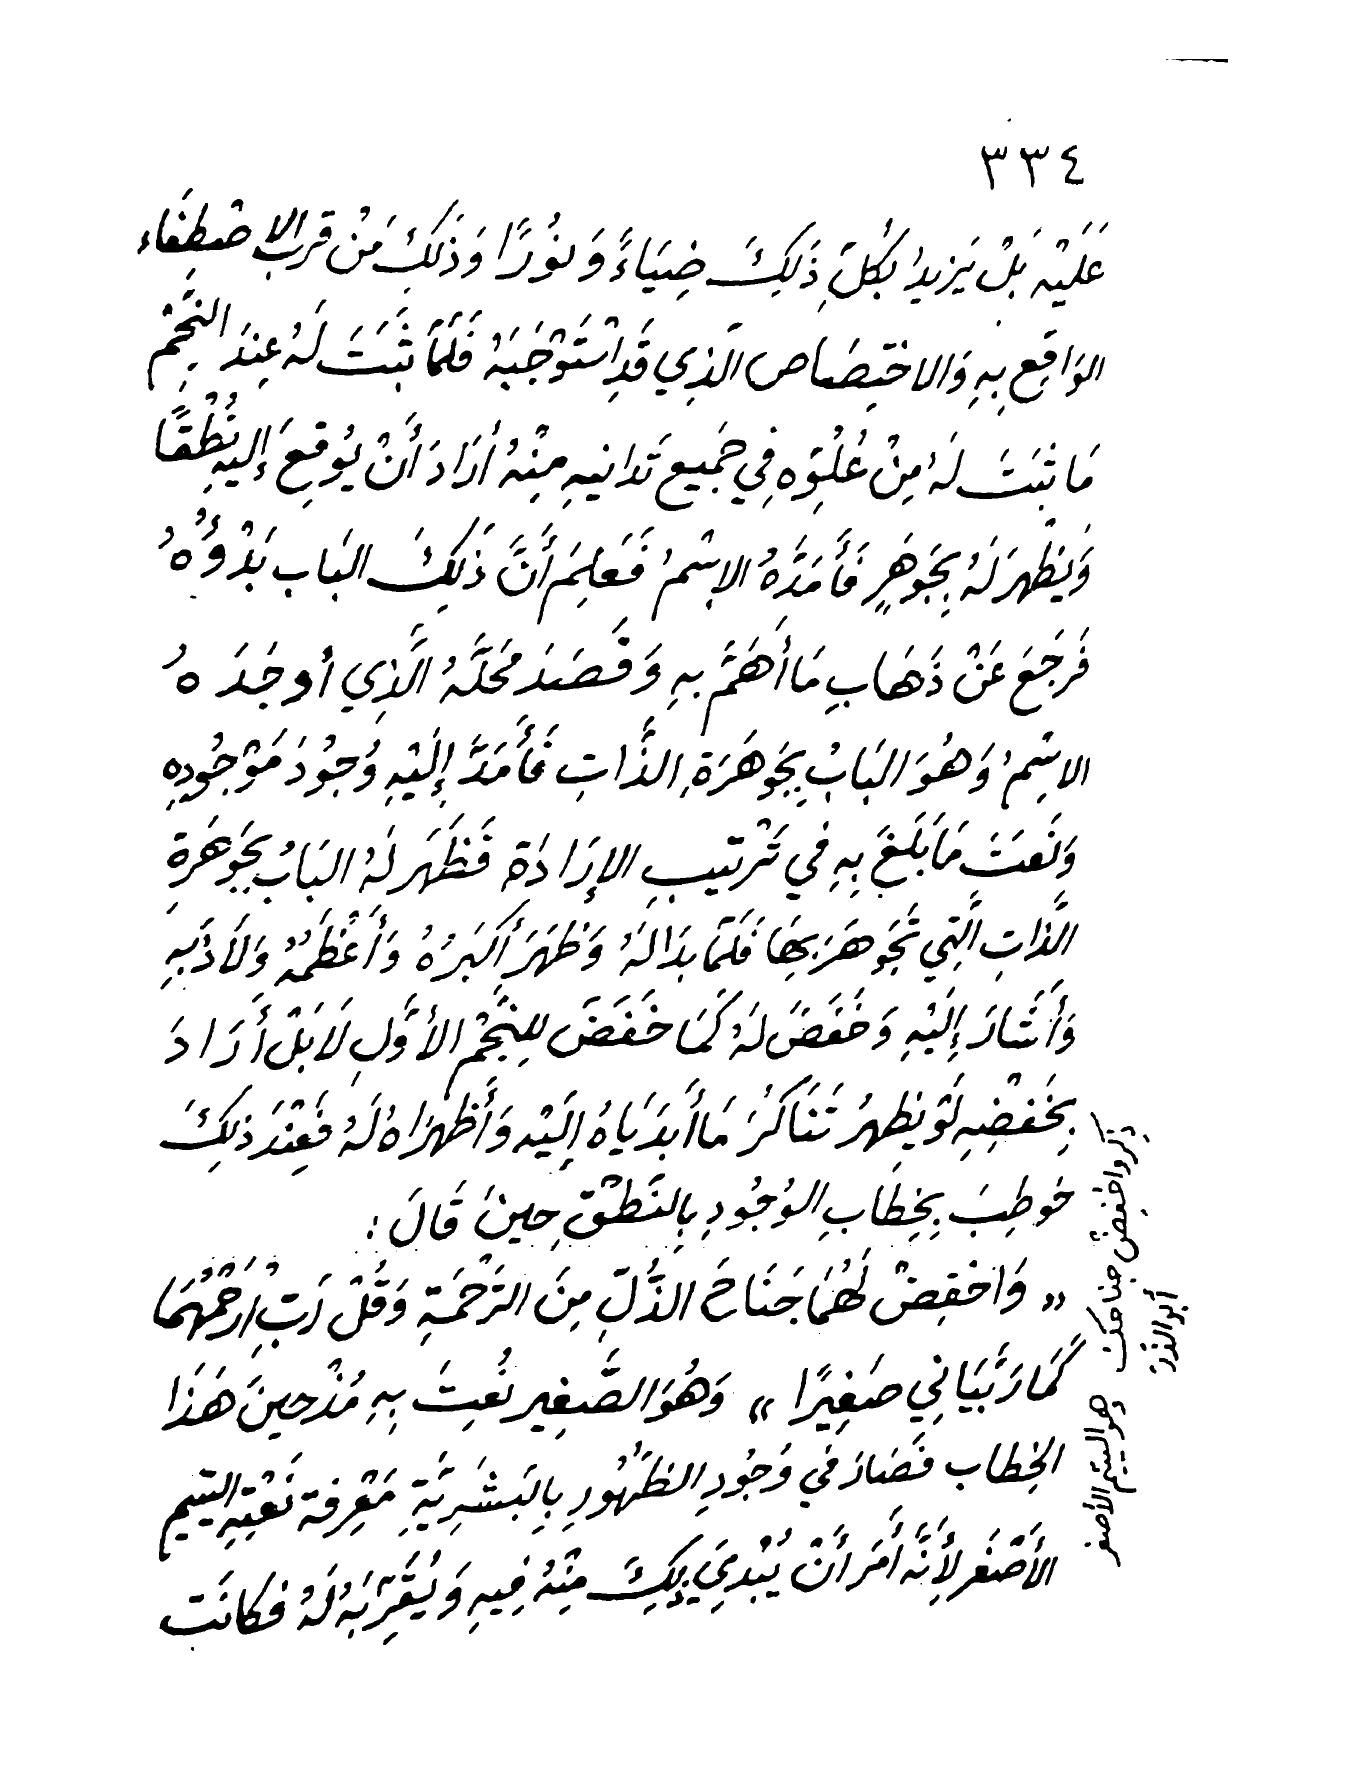 ٣٣٤
عَلَيْهِ بَلْ يَزِيدُ بِكُلِّ ذَلِكَ ضِيَاءً وَنُورًا وَذَلِكَ مَنْ قَرُبَ الاصْطِفَاءِ
الوَاقِعِ بِهِ وَالاخْتِصَاصِ الَّذِي قَدِ اسْتَوْجَبَهُ فَلَمَّا ثَبَتَ لَهُ عِنْدَ النَّجْمِ
مَا ثَبَتَ لَهُ مِنْ عُلُوِّهِ فِي جَمِيعِ تَدَانِيهِ مِنْهُ أَرَادَ أَنْ يُوقِعَ إِلَيْهِ نُطْقًا
وَيَظْهَرَ لَهُ بِجَوْهَرٍ فَأَمَدَّهُ الاِسْمُ فَعَلِمَ أَنَّ ذَلِكَ البَابَ بَدْؤُهُ
فَرَجَعَ عَنْ ذَهَابِ مَا أَهَمَّ بِهِ وَقَصَدَ مَحَلَّهُ الَّذِي أَوْجَدَهُ
الاِسْمُ وَهُوَ البَابُ بِجَوْهَرَةِ الذَّاتِ فَأَمَدَّ إِلَيْهِ وُجُودَ مَوْجُودِهِ
وَنَعَتَ مَا بَلَغَ بِهِ فِي تَرْتِيبِ الإِرَادَةِ فَظَهَرَ لَهُ البَابُ بِجَوْهَرَةِ
الذَّاتِ الَّتِي تَجَوْهَرَ بِهَا فَلَمَّا بَدَا لَهُ وَظَهَرَ أَكْبَرُهُ وَأَعْظَمُهُ وَلَاذَ بِهِ
وَأَشَارَ إِلَيْهِ وَخَفَضَ لَهُ كَمَا خَفَضَ لِلنَّجْمِ الأَوَّلِ لَا بَلْ أَرَادَ
بِخَفْضِهِ لَوْ يَظْهَرُ تَنَاكُرَ مَا أَبْدَيَاهُ إِلَيْهِ وَأَظْهَرَاهُ لَهُ فَعِنْدَ ذَلِكَ
خُوطِبَ بِخِطَابِ الوُجُودِ بِالنُّطْقِ حِينَ قَالَ :
« وَاخْفِضْ لَهُمَا جَنَاحَ الذُّلِّ مِنَ الرَّحْمَةِ وَقُلْ رَبِّ ارْحَمْهُمَا
كَمَا رَبَّيَانِي صَغِيرًا » وَهُوَ الصَّغِيرُ نُعِتَ بِهِ مُذْ حِينَ هَذَا
الخِطَابِ فَصَارَ فِي وُجُودِ الظُّهُورِ بِالبَشَرِيَّةِ مَعْرِفَةَ نَعْتِهِ اليَتِيمِ
الأَصْغَرِ لِأَنَّهُ أَمَرَ أَنْ يُبْدِيَ بِكَ مِنْهُ فِيهِ وَيُقَرِّبَهُ لَهُ فَكَانَتْ
ذكر واخفض جناحك وهو اليتيم الأصغر
أبو الذر